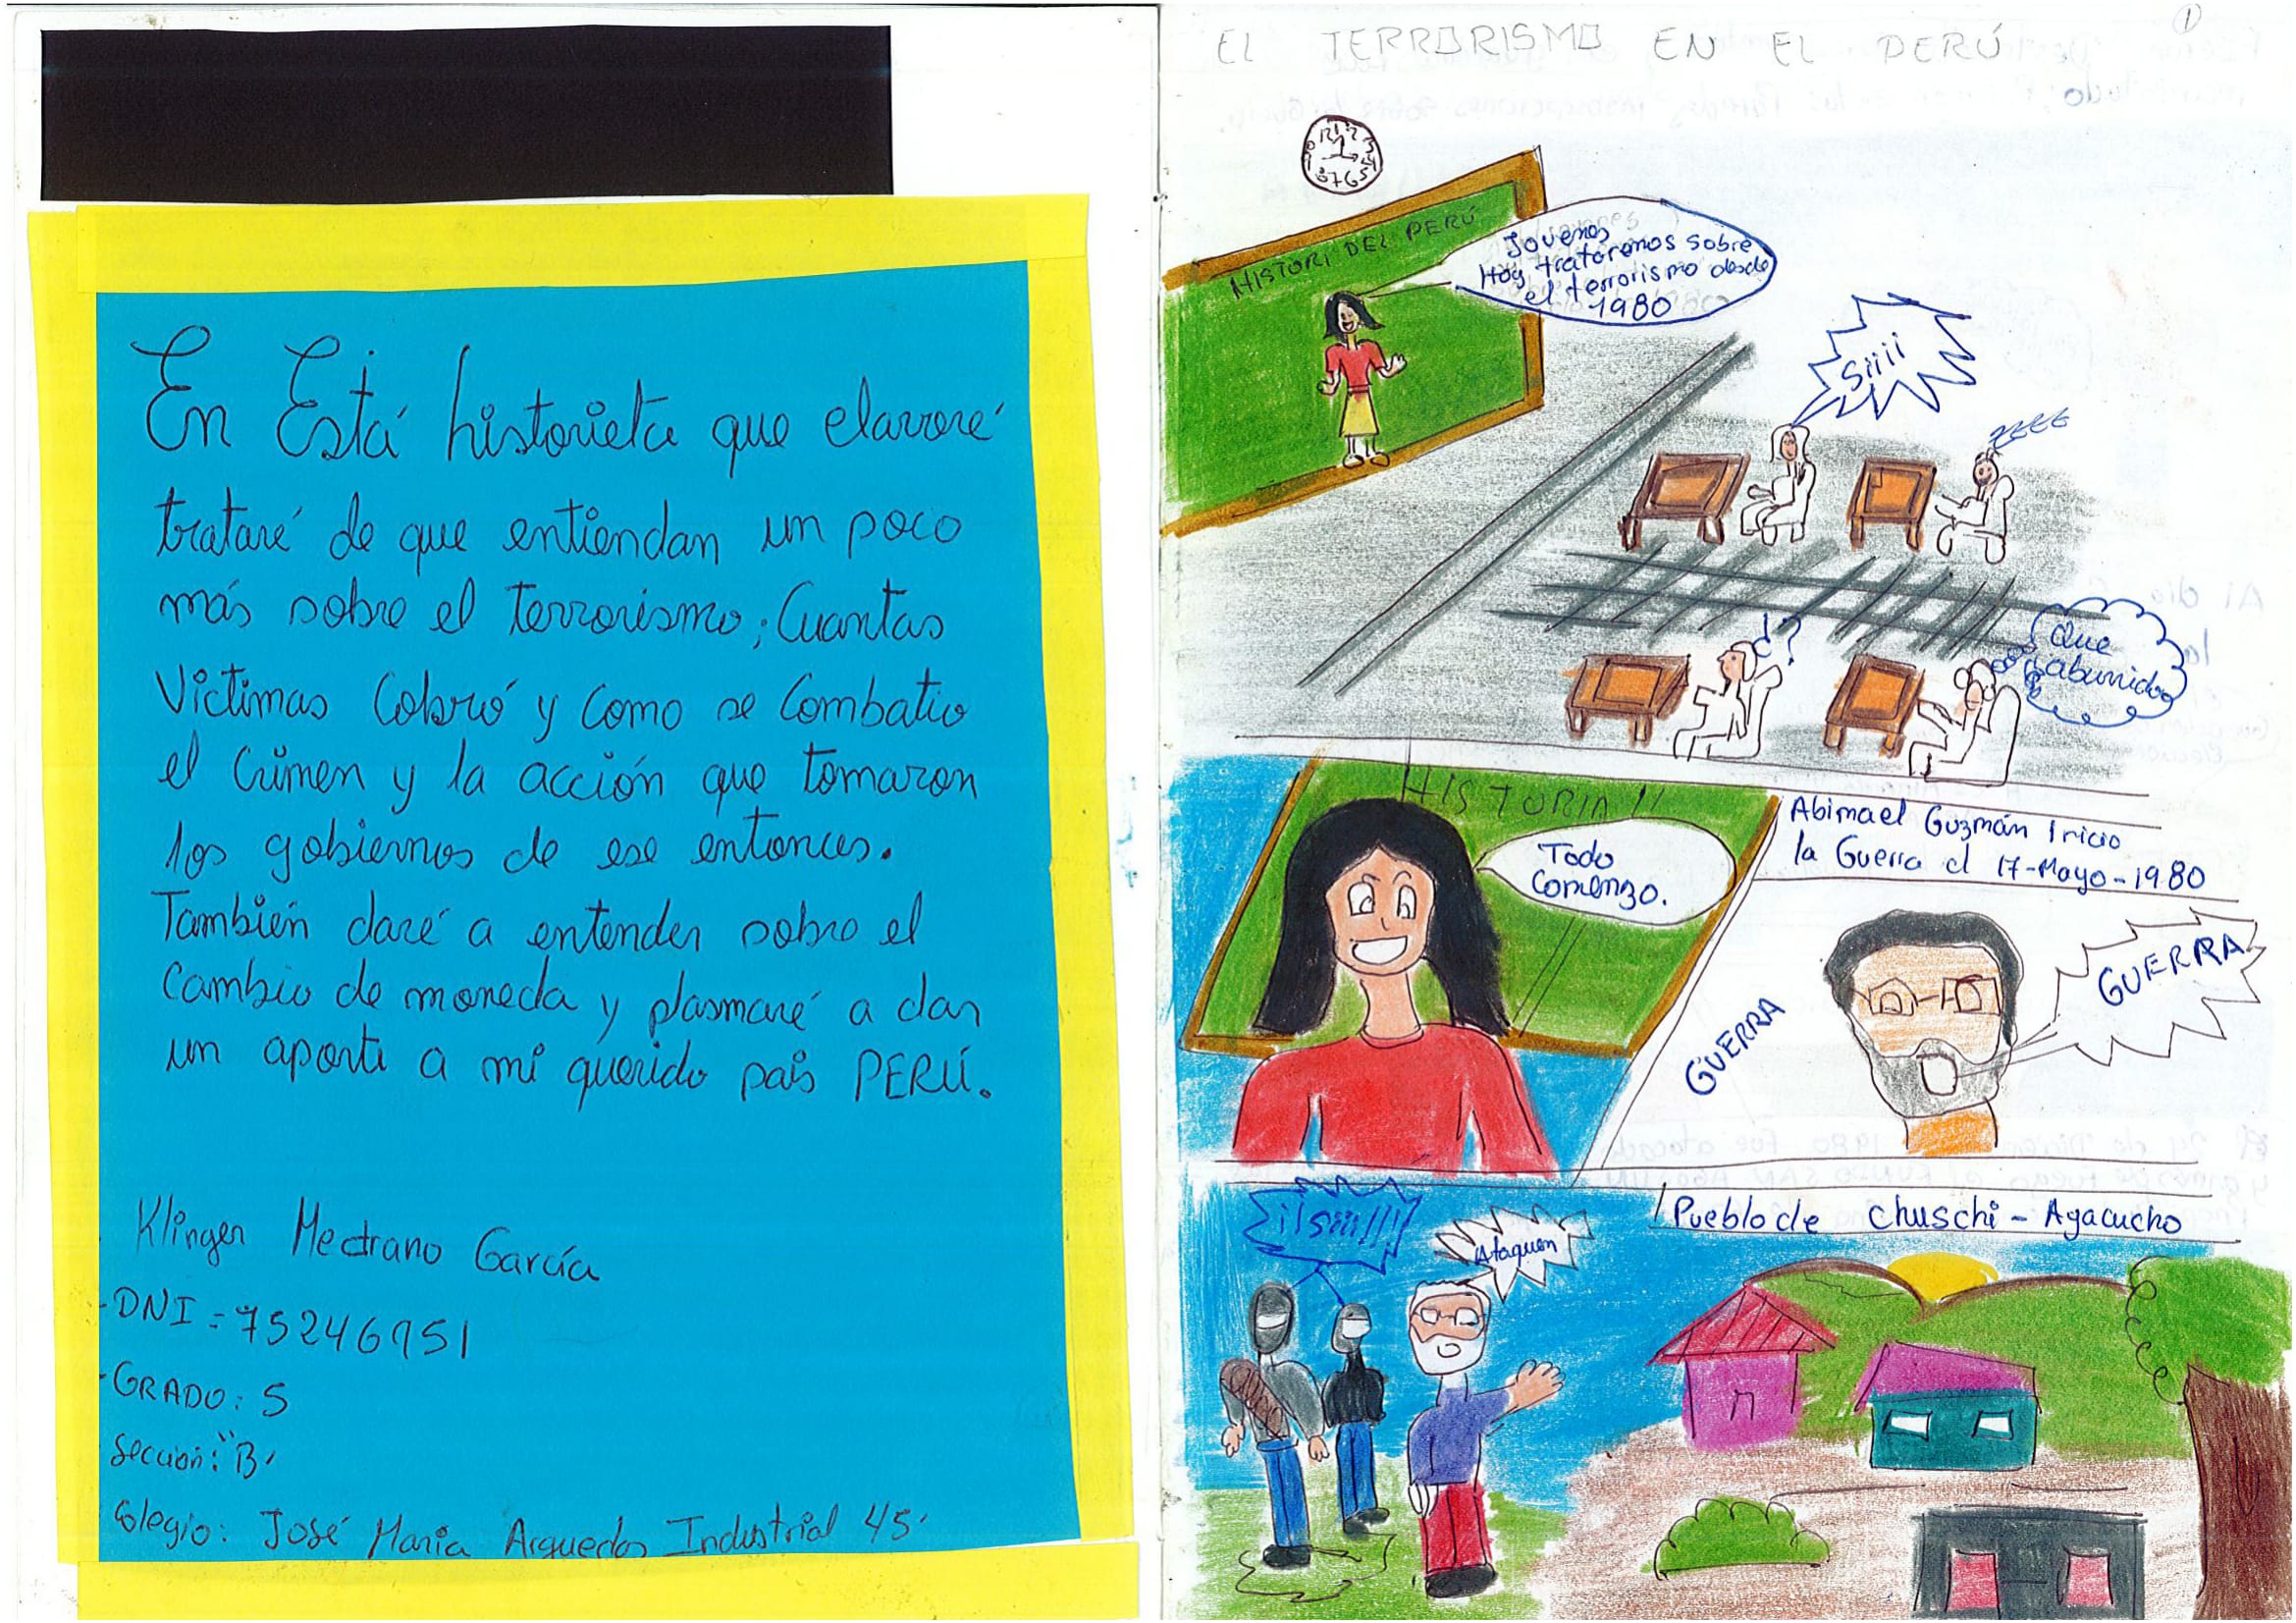 En Está historieta que elavoré
trataré de que entiendan un poco
más sobre el terrorismo; Cuantas
Victimas Cobró y como se Combatio
el Crimen y la acción que tomaron
los gobiernos de ese entonces.
También daré a entender sobre el
Cambio de moneda y plasmaré a dar
un aporte a mi querido pais PERÚ.
Klinger Medrano García
-DNI = 75246951
-GRADO: 5
Sección: "B"
Colegio: José Maria Arguedas Industrial 45
1
EL TERRORISMO EN EL PERÚ
HISTORI DEL PERÚ
Jovenes
Hoy trataremos sobre
el terrorismo desde
1980
Siiii
zzzz
¿?
Que
aburrido
HISTORIA!!
Todo
Comenzo.
Abimael Guzmán Inicio
la Guerra el 17-Mayo-1980
GUERRA
GUERRA
¡¡Siii!!!
Ataquen
Pueblo de Chuschi - Ayacucho